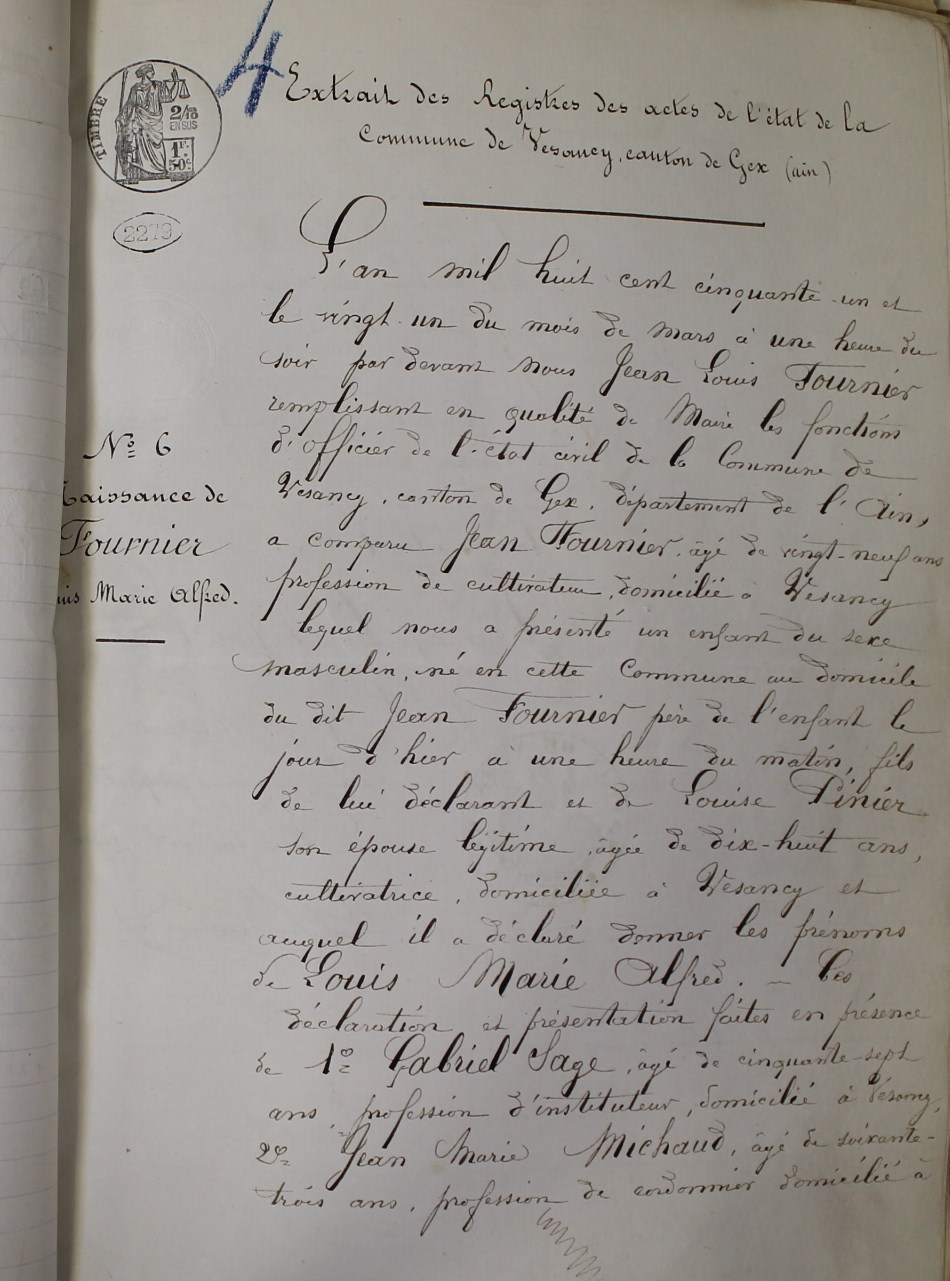 4
TIMBRE
2/10
EN SUS
1F.
50c
2279
Extrait des Registres des actes de l'état de la
Commune de Vesancy, canton de Gex (ain)
L'an mil huit cent cinquante-un et
le vingt-un du mois de mars à une heure du
soir par devant nous Jean Louis Fournier
remplissant en qualité de Maire les fonctions
d'officier de l'état civil de la Commune de
Vesancy, canton de Gex, département de l'Ain,
a comparu Jean Fournier, âgé de vingt-neuf ans
profession de cultivateur, domicilié à Vesancy
lequel nous a présenté un enfant du sexe
masculin, né en cette Commune au domicile
du dit Jean Fournier père de l'enfant le
jour d'hier à une heure du matin, fils
de lui déclarant et de Louise Pinier
son épouse légitime, âgée de dix-huit ans,
cultivatrice, domiciliée à Vesancy et
auquel il a déclaré donner les prénoms
de Louis Marie Alfred. — Les
déclaration et présentation faites en présence
de 1º Gabriel Sage, âgé de cinquante-sept
ans, profession d'instituteur, domicilié à Vesancy,
2º Jean Marie Michaud, âgé de soixante-
trois ans, profession de cordonnier domicilié à
Nº 6
aissance de
Fournier
uis Marie Alfred.